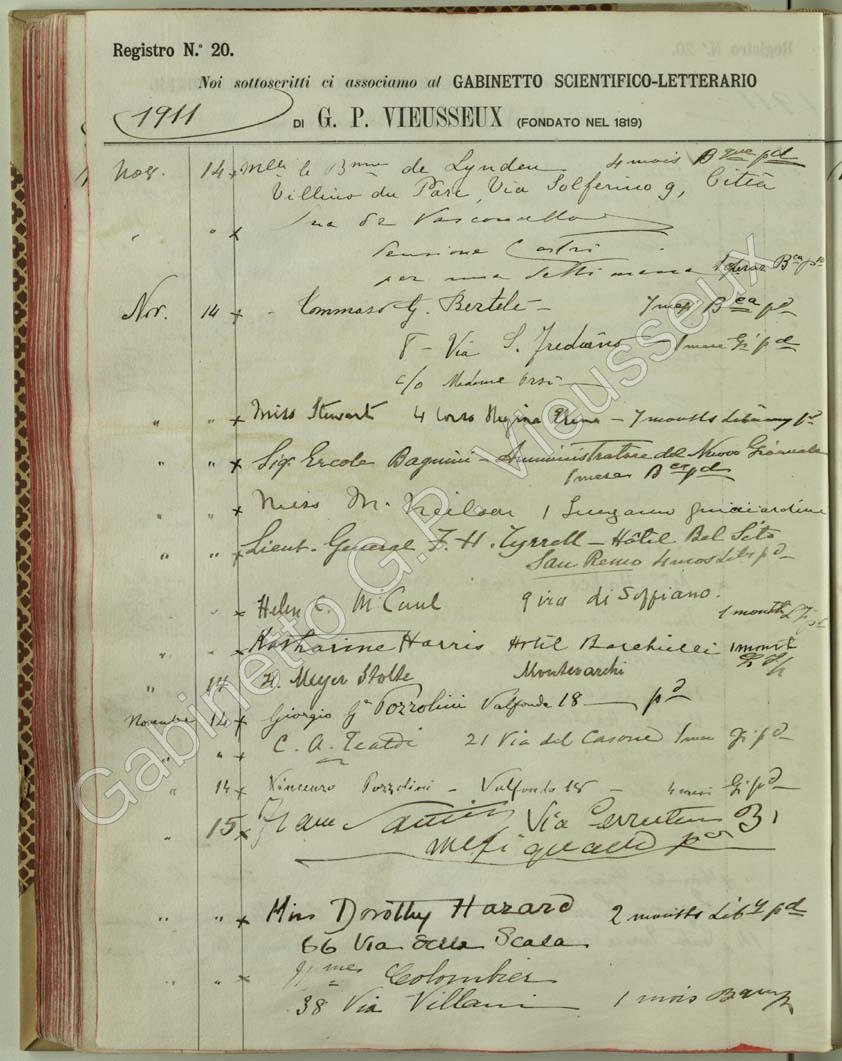 Registro N.° 20.
Noi sottoscritti ci associamo al GABINETTO SCIENTIFICO-LETTERARIO
1911
DI G. P. VIEUSSEUX (FONDATO NEL 1819)
Nov. 14 x Mlle la Bnne de Lynden 4 mois Bque pd
Villino du Parc, Via Solferino 9, Città
" " x de Vasconcellos
Pensione Castri
per una settimana Bca pd
Nov. 14 x Tommaso G. Bertelè - 7 mesi Bca pd
8 - Via S. Frediano - 1 mese Gi pd
c/o Madame Orsi
" " x Miss Stewart 4 Corso Regina Elena - 7 months Library pd
" " x Sig. Ercole Bagnini - Amministratore del Nuovo Giornale
1 mese Bca pd
" x Miss M. Neilson 1 Lungarno Guicciardini
" " x Lieut. General F. H. Tyrrell - Hôtel Bel Sito
San Remo 4 mos Liby pd
" x Helen C. M'Caul 9 via di Soffiano.
1 month
" x Katharine Harris Hotel Barchielli 1 month
" 14 H. Meyer Stolte Montevarchi
Novembre 14 x Giorgio Pozzolini Valfonda 18 - pd
" " x C. A. 21 Via del Casone 1 mese Gi pd
" 14 x Vincenzo Pozzolini - Valfonda 18 - 4 mesi Gi pd
" 15 x Via Cerretani 3
mesi quattro
" " x Miss Dorothy Hazard 2 months Liby pd
66 Via della Scala
" x Mmes Colombier
38 Via Villani 1 mois Bque
Gabinetto G.P. Vieusseux